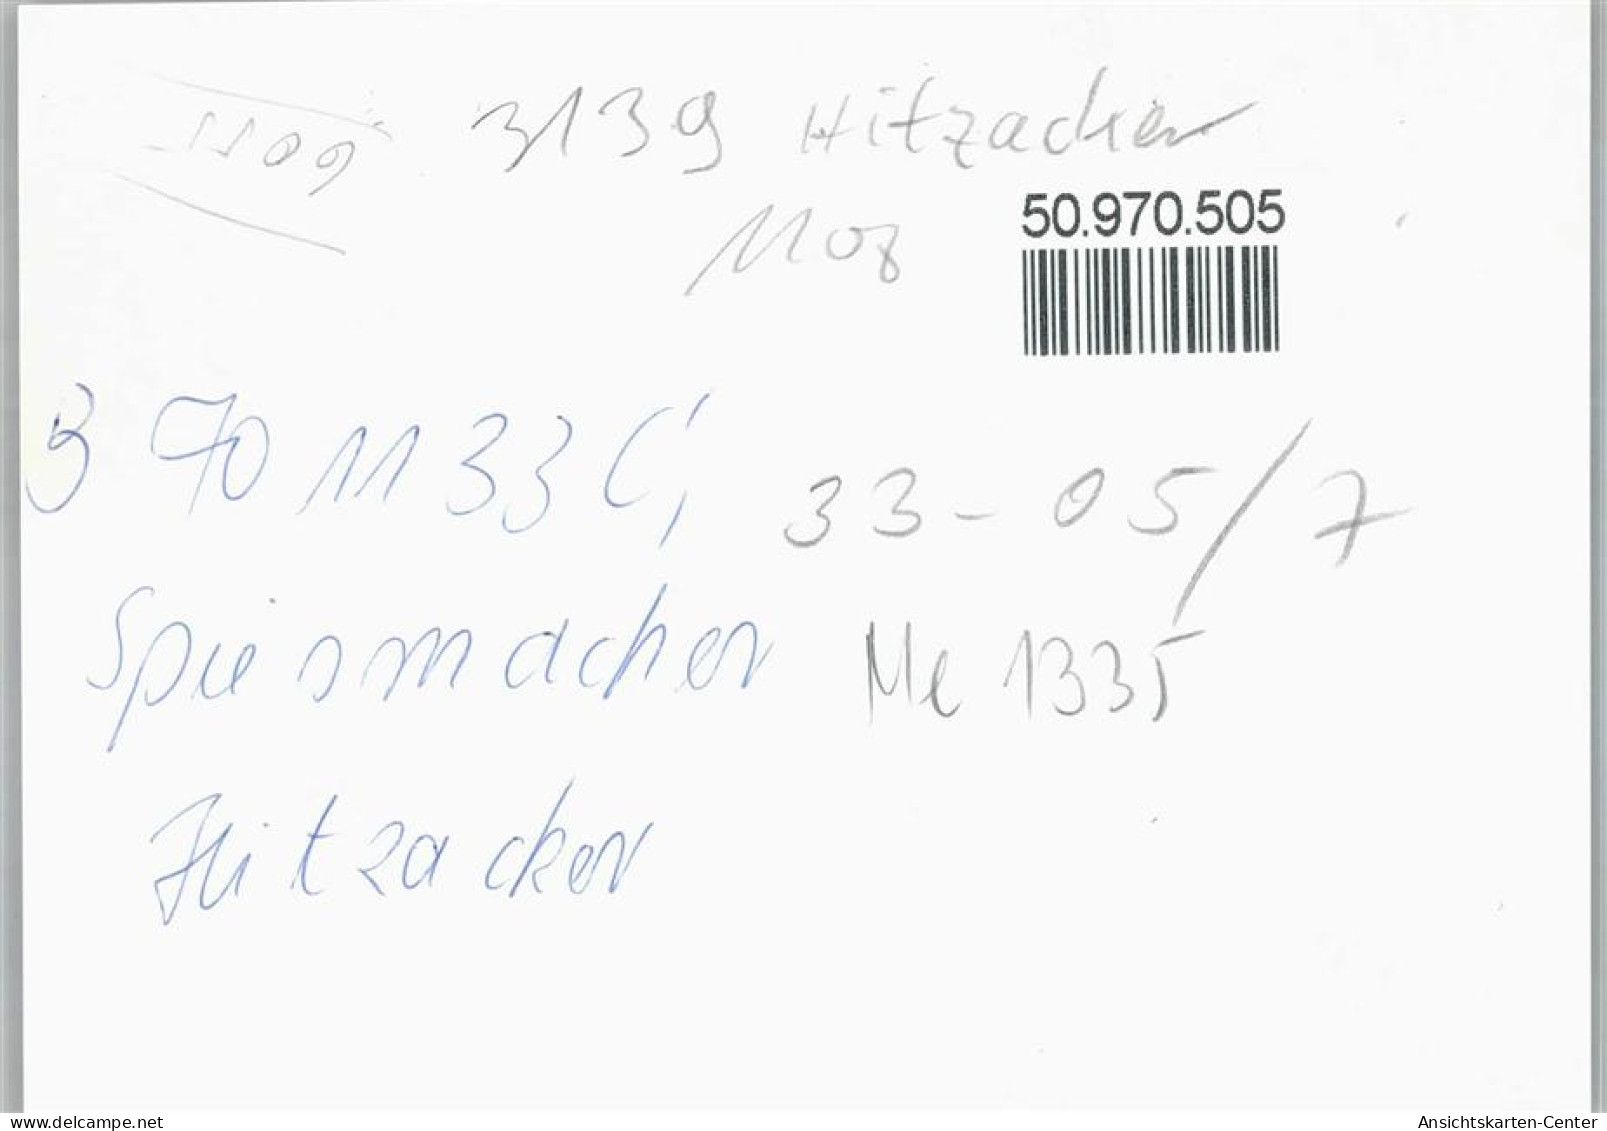 1109 3139 Hitzacker
1108
50.970.505
3 70 11 33 C,
33-05/7
Spiesmacher
Me 1335
Hitzacker
www.delcampe.net
Ansichtskarten-Center